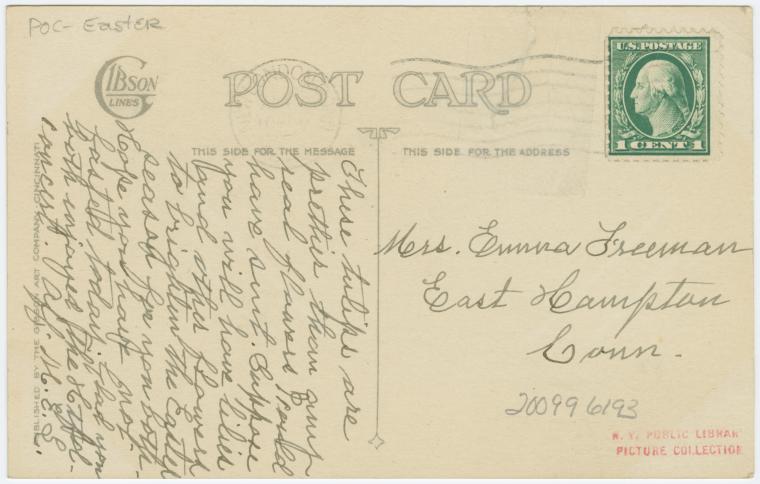 POC- Easter
GIBSON
LINES
POST CARD
U.S. POSTAGE
1 CENT 1
THIS SIDE FOR THE MESSAGE
THIS SIDE FOR THE ADDRESS
These tulips are
prettier than any
real flowers I could
have sent. Suppose
you will have lilies
and other flowers
to brighten the Easter
season for you both.
Hope you have not
fasted today. Glad you
both enjoyed the
concert. Aff. M. E. L.
Mrs. Emma Freeman
East Hampton
Conn.
PUBLISHED BY THE GIBSON ART COMPANY, CINCINNATI
200996193
N. Y. PUBLIC LIBRARY
PICTURE COLLECTION